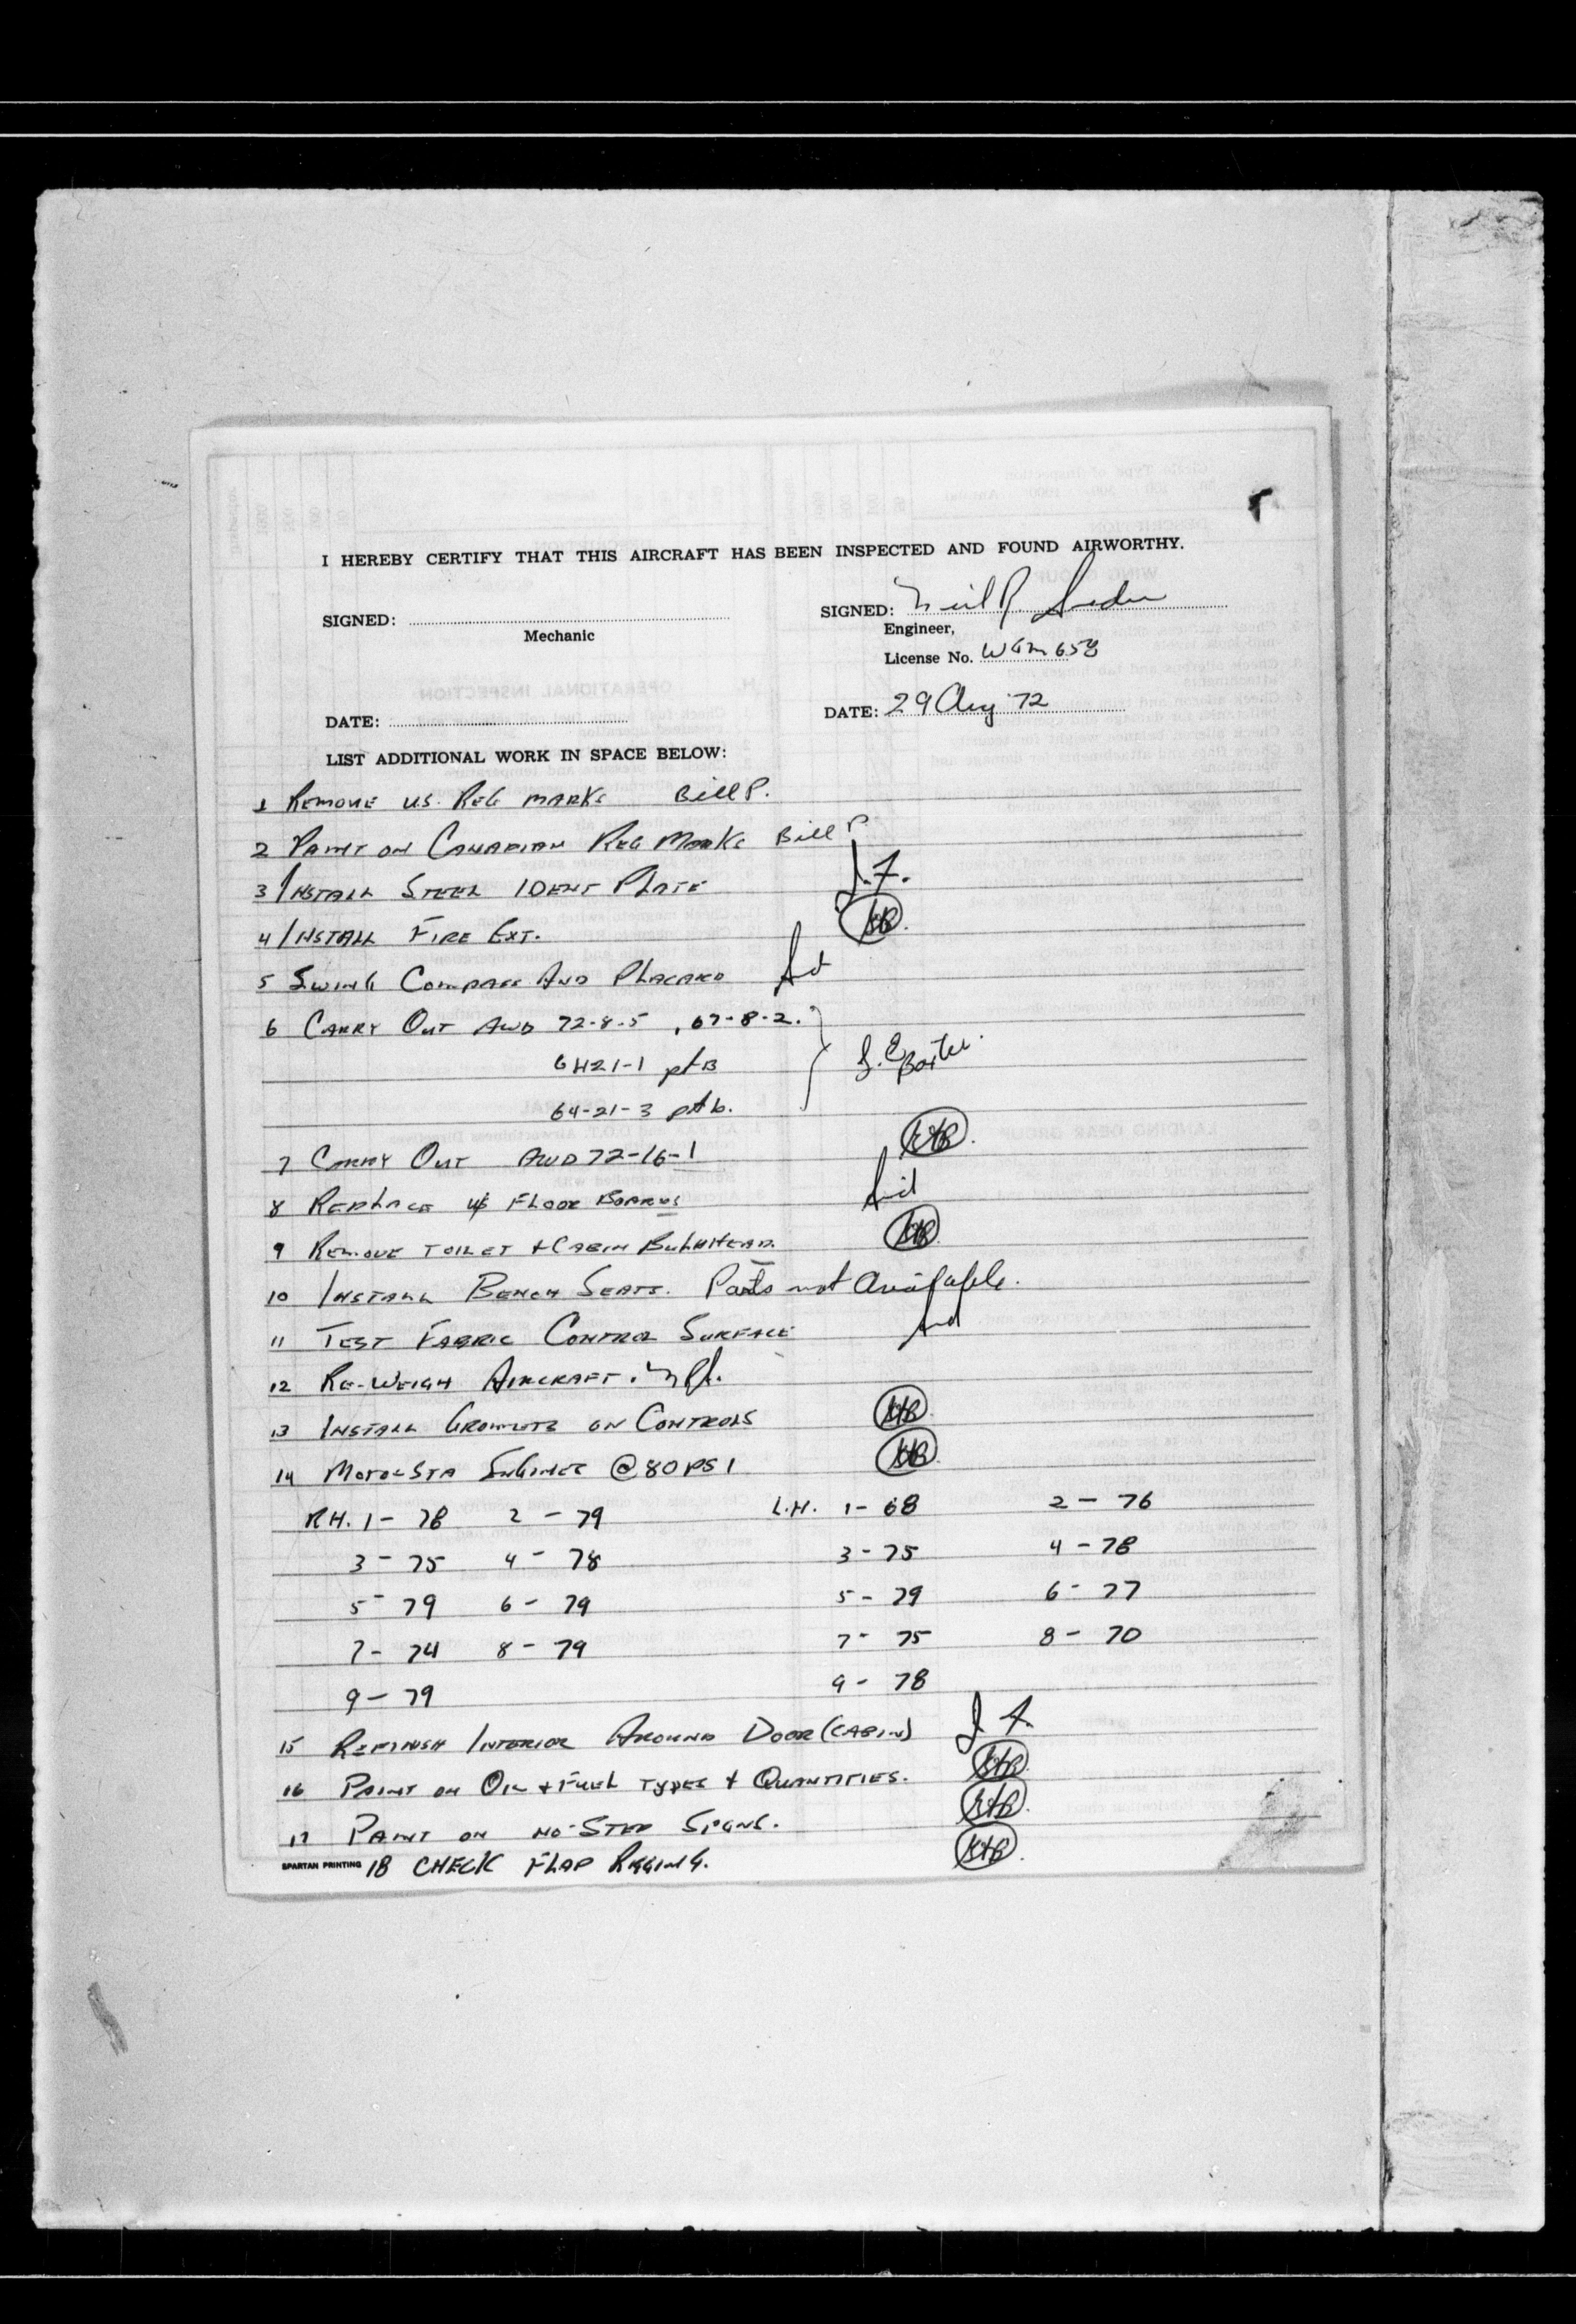 I HEREBY CERTIFY THAT THIS AIRCRAFT HAS BEEN INSPECTED AND FOUND AIRWORTHY.
SIGNED: Neil R.
SIGNED:
Engineer,
Mechanic
License No. WGM 658
DATE: 29 Aug '72
DATE:
LIST ADDITIONAL WORK IN SPACE BELOW:
1 REMOVE US. REG MARKS Bill P.
2 PAINT ON CANADIAN REG MARKS Bill P
3 INSTALL STEEL IDENT PLATE J.F.
4 INSTALL FIRE EXT.
5 SWING COMPASS AND PLACARD
6 CARRY OUT AWD 72-8-5 , 67-8-2.
6H21-1 pt B
64-21-3 pt b.
7 CARRY OUT AWD 72-16-1
8 REPLACE U/S FLOOR BOARDS
9 REMOVE TOILET + CABIN BULKHEAD.
10 INSTALL BENCH SEATS. Parts not Available.
11 TEST FABRIC CONTROL SURFACE
12 RE-WEIGH AIRCRAFT.
13 INSTALL GROMMETS ON CONTROLS
14 @ 80 PSI
R.H. 1 - 78 2 - 79 L.H. 1 - 68 2 - 76
3 - 75 4 - 78 3 - 75 4 - 78
5 - 79 6 - 79 5 - 79 6 - 77
7 - 74 8 - 79 7 - 75 8 - 70
9 - 79 9 - 78
15 REFINISH INTERIOR AROUND DOOR (CABIN) J F.
16 PAINT ON OIL + FUEL TYPES + QUANTITIES.
17 PAINT ON NO-STEP SIGNS.
SPARTAN PRINTING 18 CHECK FLAP RIGGING.